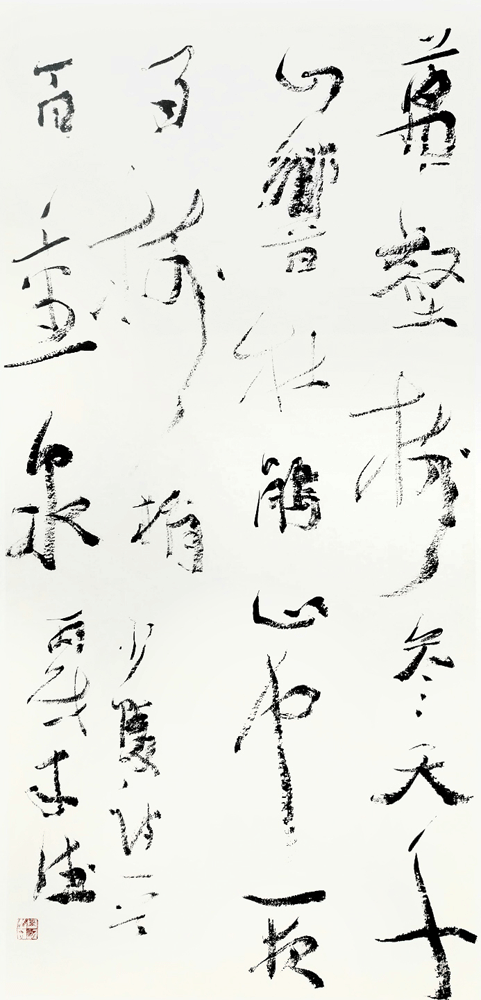 萬壑樹參天千
山響杜鵑山中一夜
雨樹梢
少陵詩一首
百重泉
丙戌